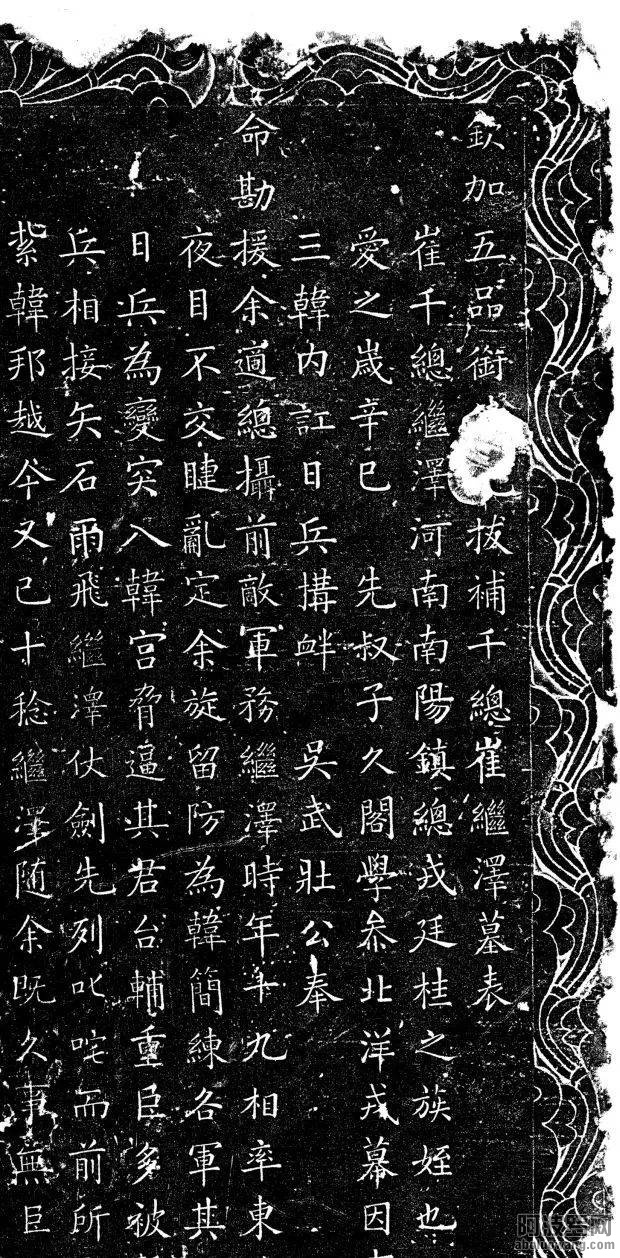 欽加五品銜拔補千總崔繼澤墓表
崔千總繼澤河南南陽鎮總戎廷桂之族姪也
愛之歲辛巳 先叔子久閣學叅北洋戎幕因
三韓內訌日兵搆衅 吳武壯公奉
命勘援余適總攝前敵軍務繼澤時年十九相率東
夜目不交睫亂定余旋留防為韓簡練各軍其
日兵為變突入韓宮脅逼其君台輔重臣多被
兵相接矢石雨飛繼澤仗劍先列叱咤而前所
紮韓邦越今又已十稔繼澤随余既久事無巨
阿波罗网
aboluowang.com